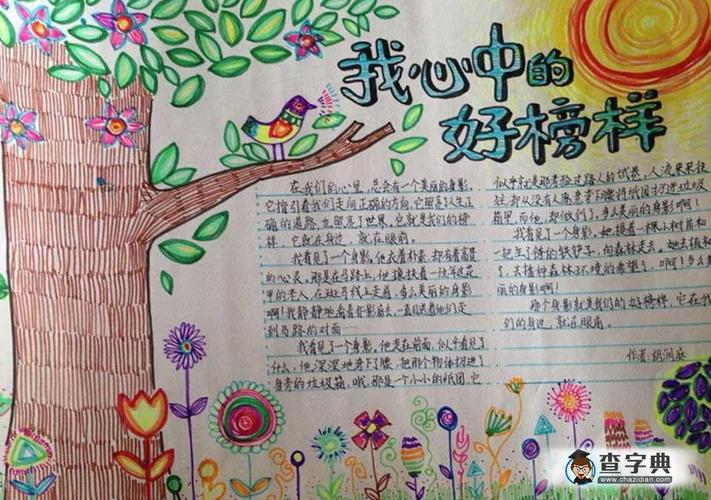 我心中的
好榜样
在我们的心里,总会有一个美丽的身影,
它指引着我们走向正确的方向,它照亮了人生正
确的道路,也照亮了世界。它就是我们的榜
样。它就在身边,就在眼前。
我看见了一个身影。他衣着朴素,却有着富贵
的心灵。那是在马路上,他搀扶着一位年过花
甲的老人,在斑马线上走着,多么美丽的身影
啊!我静静地看着背影离去,一直目送着他们走
到马路的对面……
我看见了一个身影。他走在前面,似乎看见了
什么,他深深地弯下了腰,把那个物体扔进了
身旁的垃圾箱。哦,那是一个小小的纸团,它
似乎就是那考验过路人的试卷,人流来来往
往,却从没有人愿意弯下腰将纸团扔进垃圾
箱里,而他,却做到了。多么美丽的身影啊!
我看见了一个身影。她提着一棵小树苗和
一把生了锈的铁铲子,向森林走去。她去植树
了,去播种森林环境的希望了。啊!多么美
丽的身影啊!
那个身影就是我们的好榜样,它在我
们的身边,就在眼前。
作者:胡润庭
查字典
www.chazidian.com